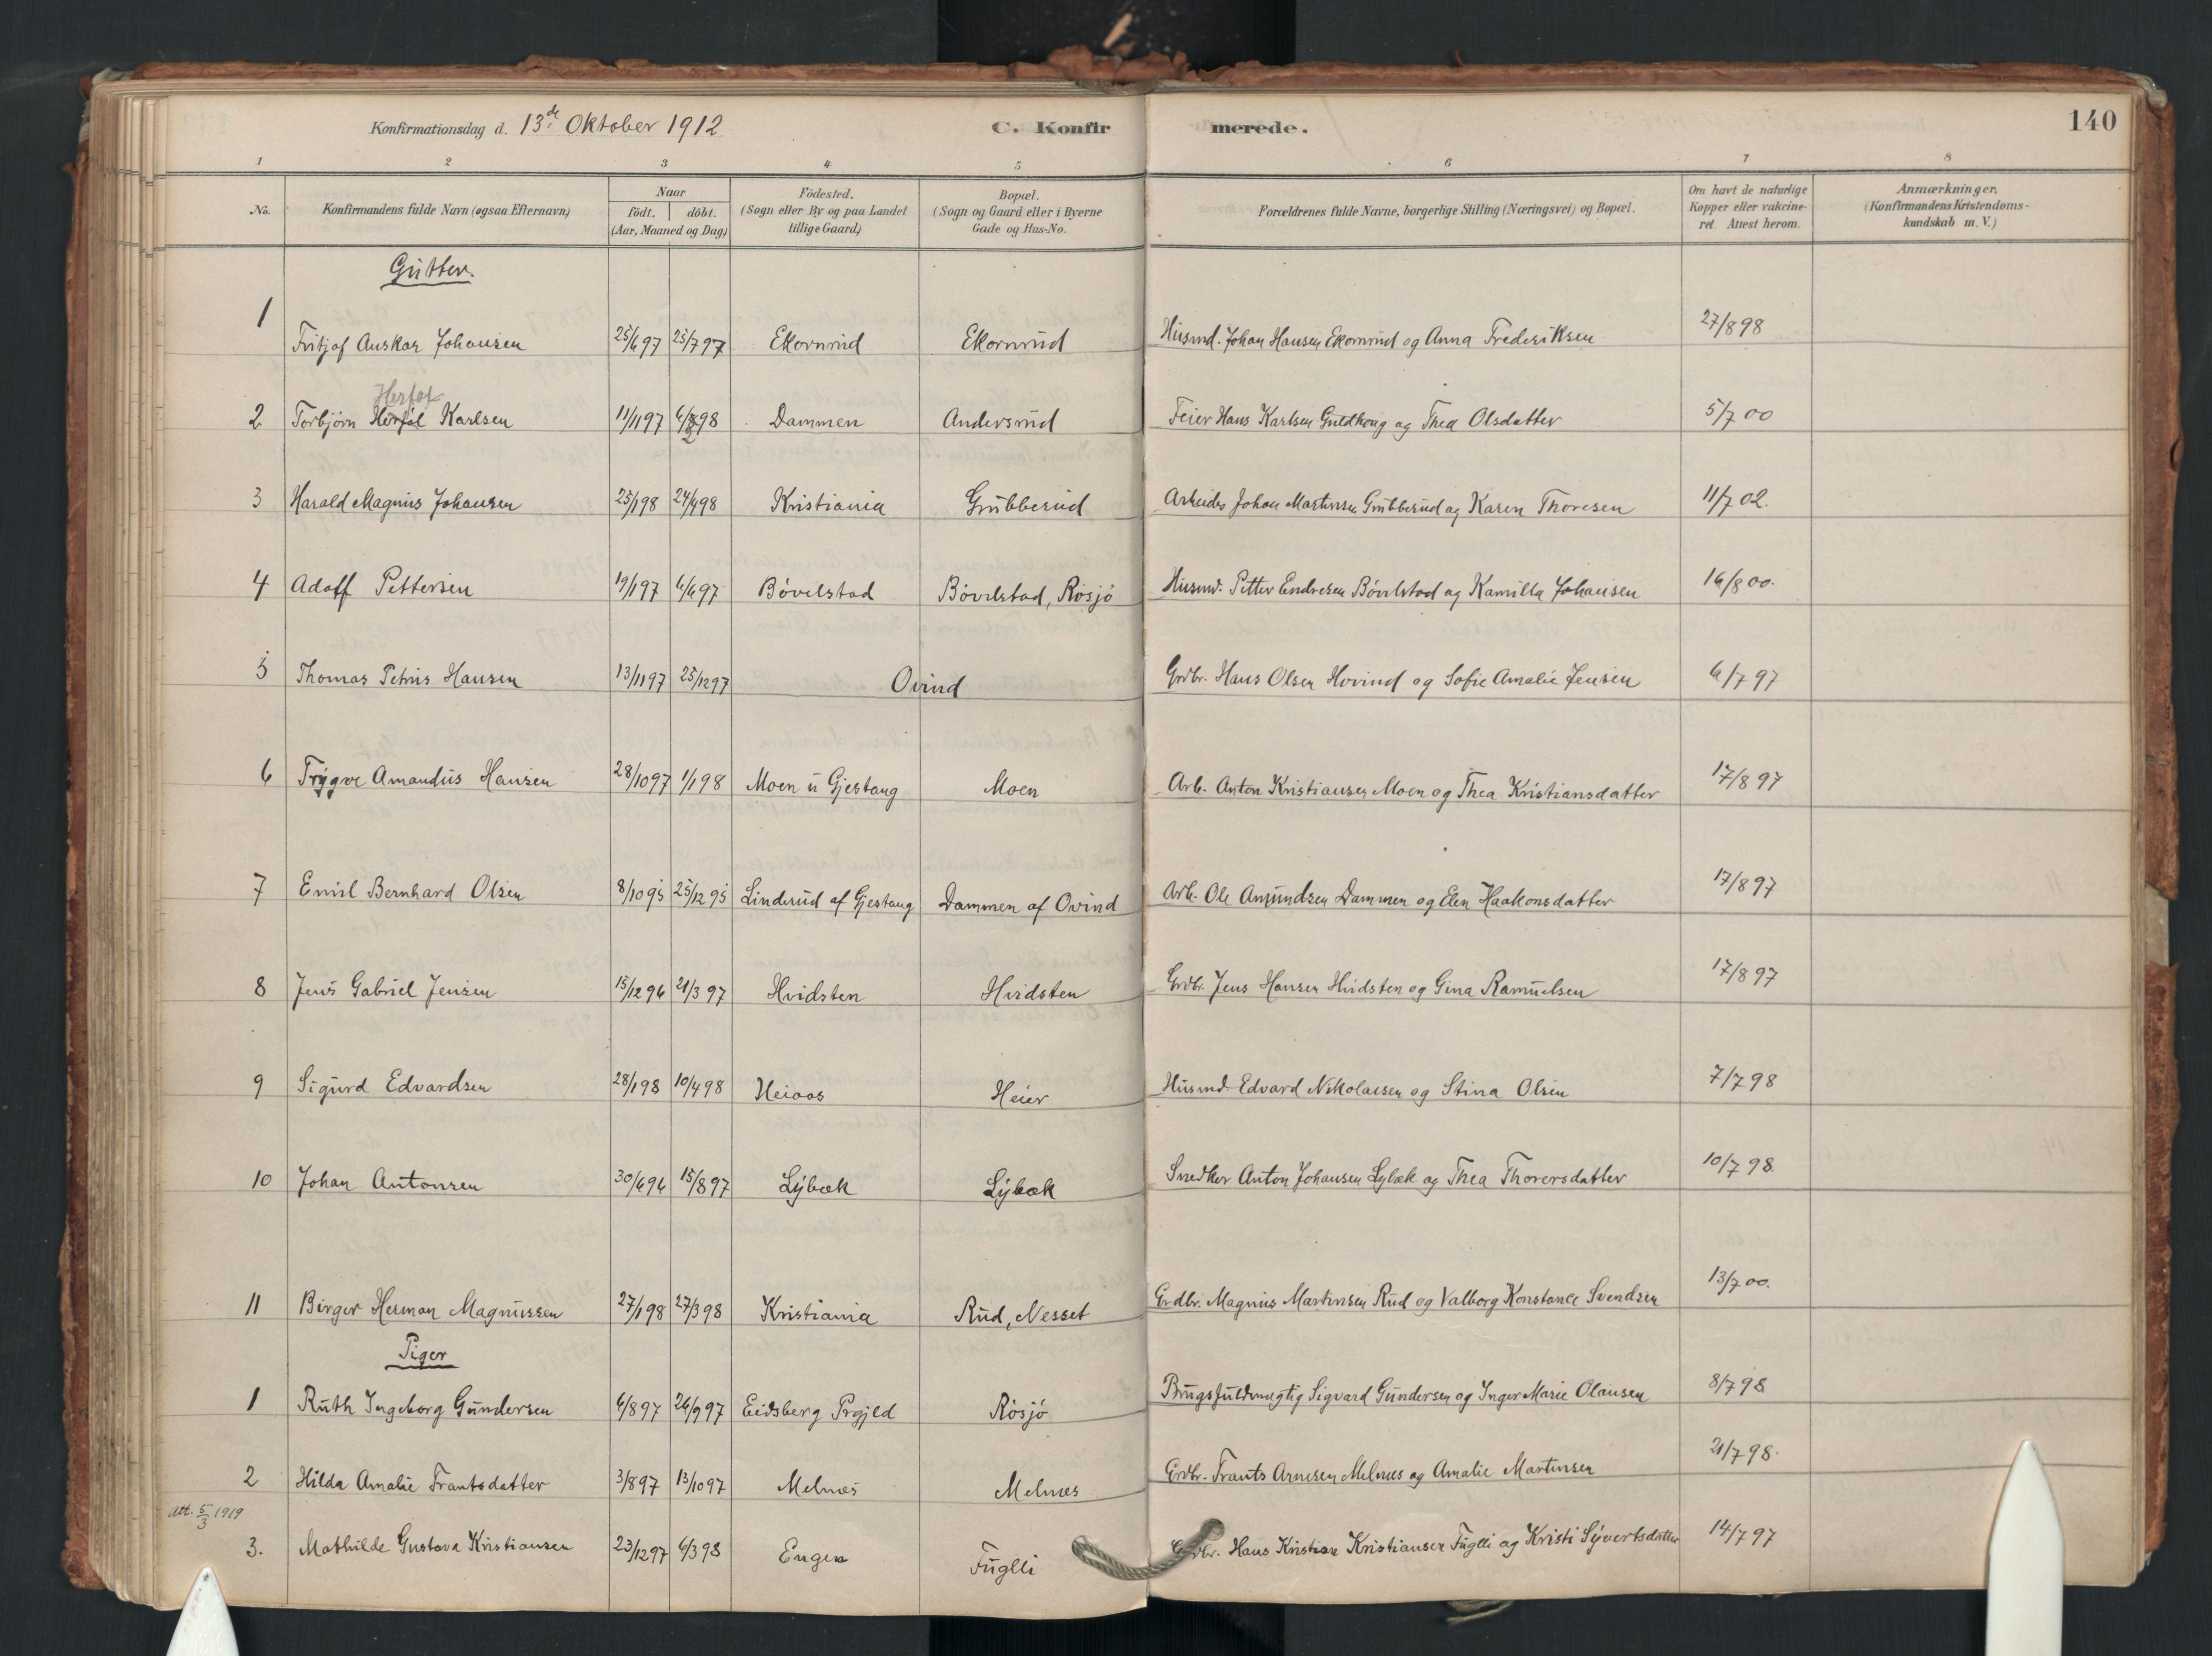 Konfirmationsdag d. 13de Oktober 1912 C. Konfirmerede. 140
1 2 3 4 5 6 7 8
No. Konfirmandens fulde Navn (ogsaa Efternavn) Naar födt. döbt. (Aar, Maaned og Dag) Födested. (Sogn eller By og paa Landet tillige Gaard) Bopæl. (Sogn og Gaard eller i Byerne Gade og Hus-No. Forældrenes fulde Navne, borgerlige Stilling (Næringsvei) og Bopæl. Om havt de naturlige Kopper eller vakcineret. Attest herom. Anmærkninger. (Konfirmandens Kristendomskundskab m. V.)
Gutter.
1 Fritjof Anskar Johansen 25/6 97 25/7 97 Ekornrud Ekornrud Husmd. Johan Hansen Ekornrud og Anna Frederiksen 27/8 98
Herfol
2 Torbjörn Herföl Karlsen 11/11 97 6/2 98 Dammen Andersrud Feier Hans Karlsen Guldkong og Thea Olsdatter 5/7 00
3 Harald Magnus Johansen 25/1 98 24/4 98 Kristiania Grubberud Arbeider Johan Martinsen Grubberud og Karen Thoresen 11/7 02.
4 Adolf Pettersen 19/1 97 6/6 97 Bövelstad Bövelstad, Rösjö Husmd. Petter Endresen Bövelstad og Kamilla Johansen 16/8 00.
5 Thomas Petrus Hansen 13/11 97 25/12 97 Ovind Grdbr. Hans Olsen Hovind og Sofie Amalie Jensen 6/7 97
6 Trygve Amandus Hansen 28/10 97 1/1 98 Moen u Gjestang Moen Arb. Anton Kristiansen Moen og Thea Kristiansdatter 17/8 97
7 Emil Bernhard Olsen 8/10 95 25/12 95 Linderud af Gjestang Dammen af Ovind Arb. Ole Amundsen Dammen og Elen Haakonsdatter 17/8 97
8 Jens Gabriel Jensen 15/12 96 21/3 97 Hvidsten Hvidsten Grdbr. Jens Hansen Hvidsten og Gina Ramuelsen 17/8 97
9 Sigurd Edvardsen 28/1 98 10/4 98 Heiaas Heier Husmd. Edvard Nikolaisen og Stina Olsen 7/7 98
10 Johan Antonsen 30/6 96 15/8 97 Lybæk Lybæk Snedker Anton Johansen Lybæk og Thea Thorersdatter 10/7 98
11 Birger Herman Magnussen 27/1 98 27/3 98 Kristiania Rud, Nesset Grdbr. Magnus Martinsen Rud og Valborg Konstance Svendsen 13/7 00.
Piger
1 Ruth Ingeborg Gundersen 6/8 97 26/9 97 Eidsberg Prgjld Rösjö Brugsfuldmegtig Sigvard Gundersen og Inger Marie Olausen 8/7 98
2 Hilda Amalie Frantsdatter 3/8 97 13/10 97 Melnæs Melnæs Grdbr. Frants Arnesen Melnæs og Amalie Martinsen 21/7 98.
Att. 5/3 1919
3. Mathilde Gustava Kristiansen 23/12 97 6/3 98 Engen Fuglli Grdbr. Hans Kristian Kristiansen Fuglli og Kristi Syvertsdatter 14/7 97